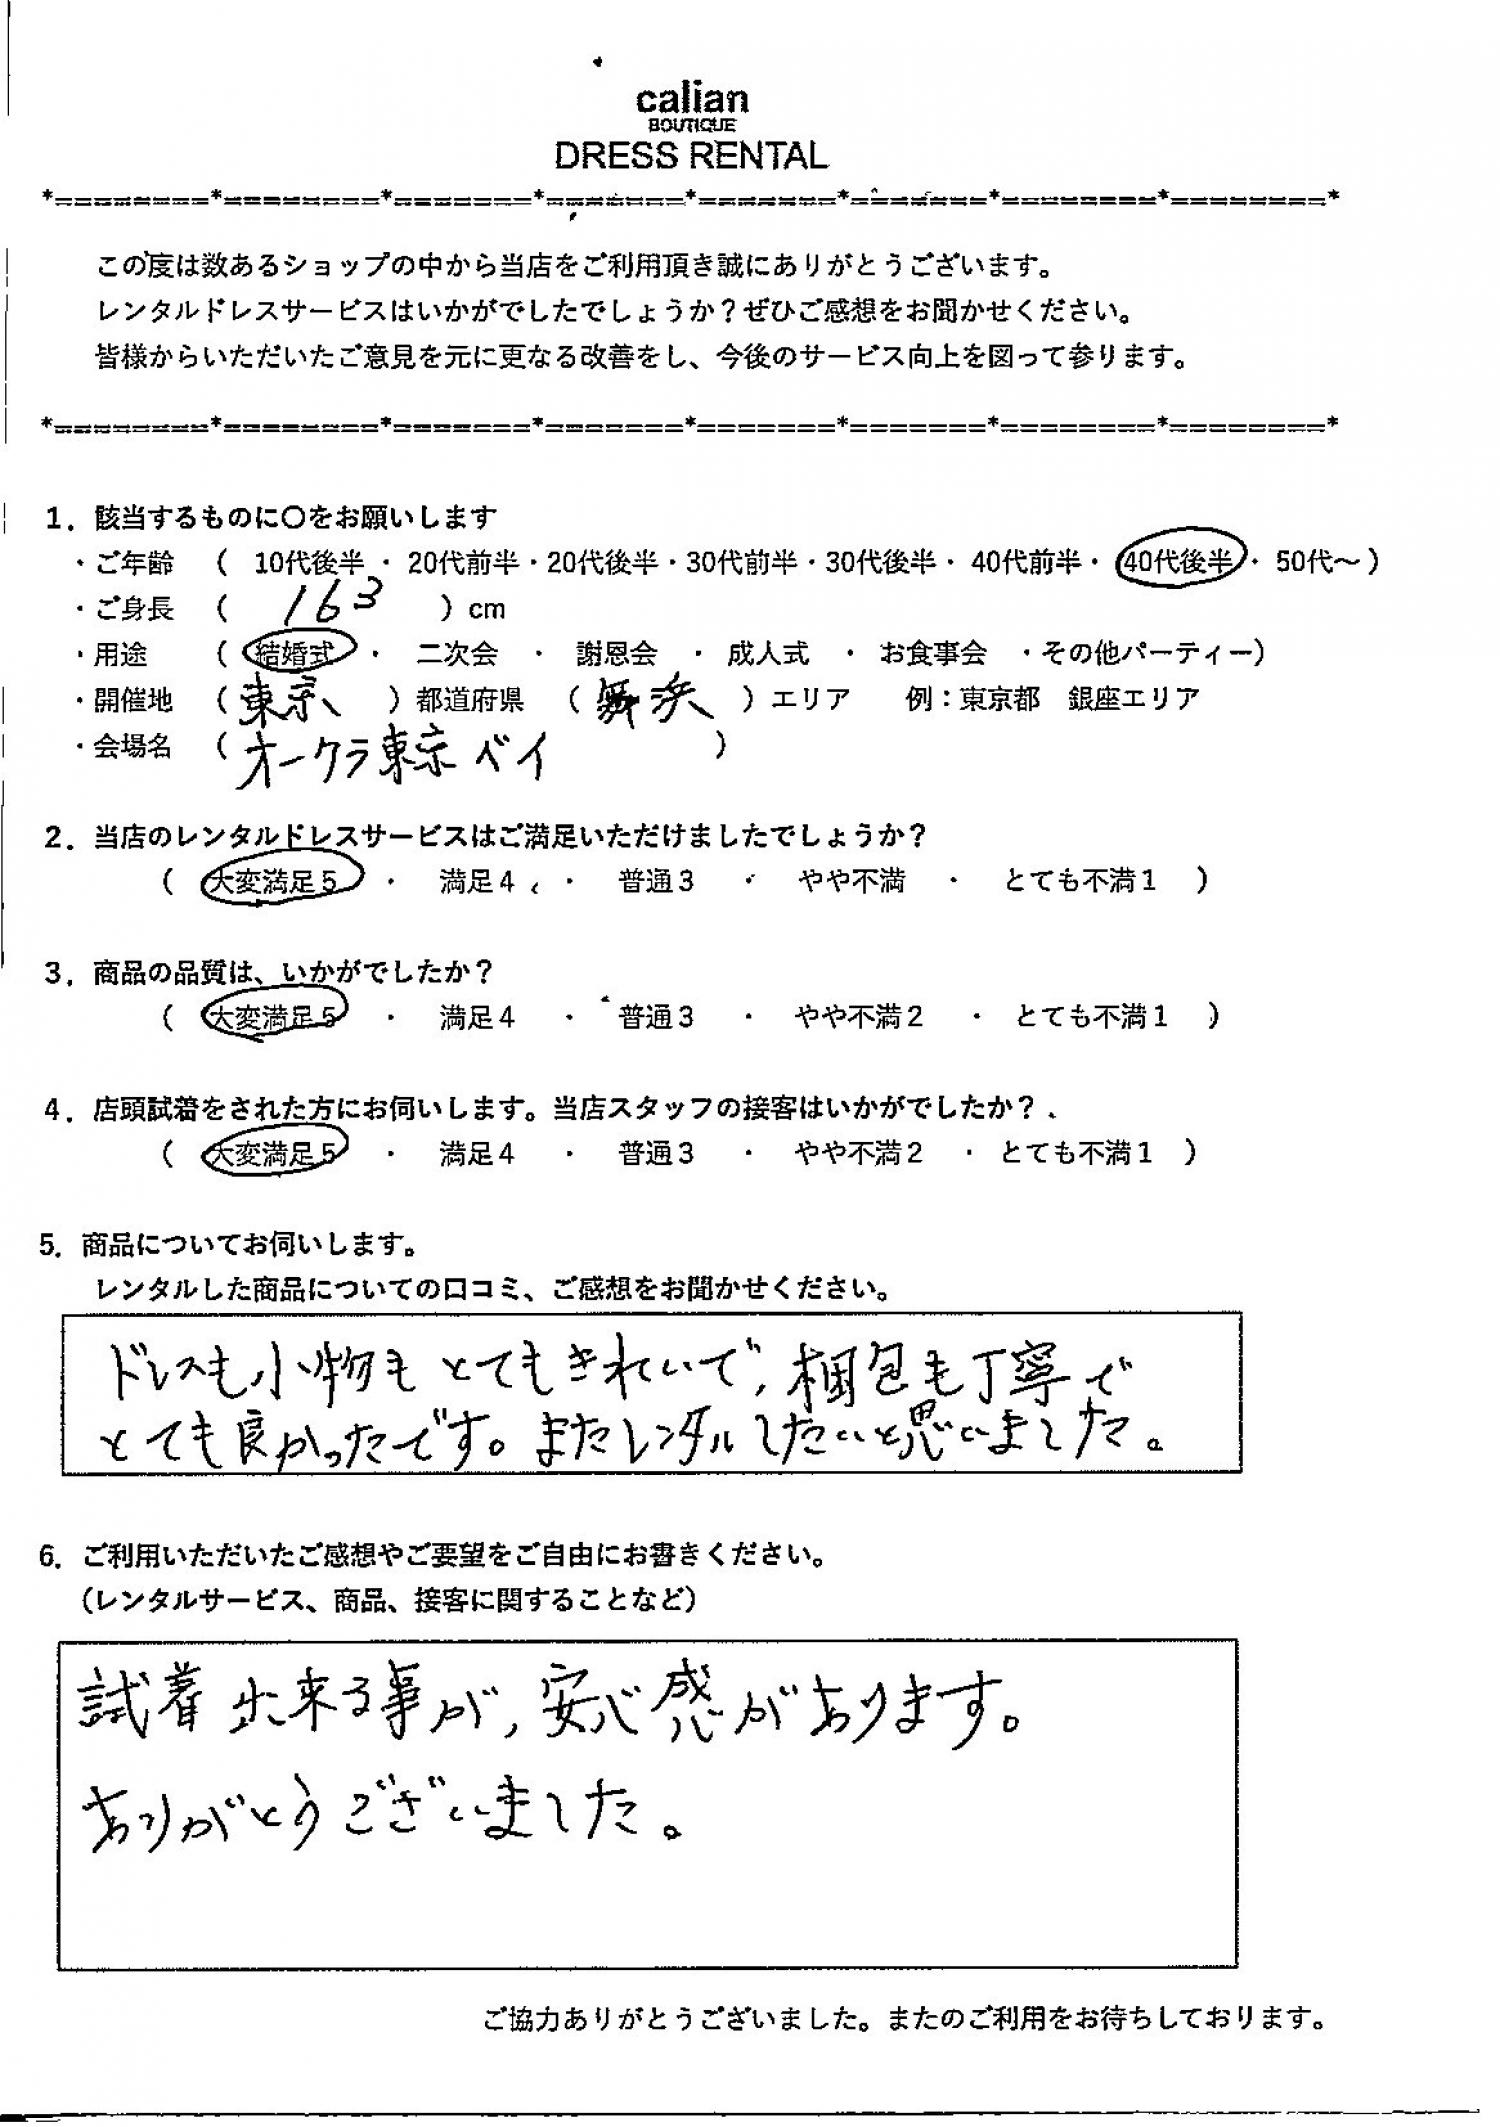 calian
BOUTIQUE
DRESS RENTAL
*========*========*=======*=======*=======*=======*========*========*
この度は数あるショップの中から当店をご利用頂き誠にありがとうございます。
レンタルドレスサービスはいかがでしたでしょうか？ぜひご感想をお聞かせください。
皆様からいただいたご意見を元に更なる改善をし、今後のサービス向上を図って参ります。
*========*========*=======*=======*=======*=======*========*========*
1．該当するものに〇をお願いします
・ご年齢 （ 10代後半 ・ 20代前半・20代後半・30代前半・30代後半・ 40代前半・ 40代後半・ 50代～）
・ご身長 （ 163 ）cm
・用途 （ 結婚式 ・ 二次会 ・ 謝恩会 ・ 成人式 ・ お食事会 ・その他パーティー）
・開催地 （東京 ）都道府県 （ 舞浜 ）エリア 例：東京都 銀座エリア
・会場名 （オークラ東京ベイ ）
2．当店のレンタルドレスサービスはご満足いただけましたでしょうか？
（ 大変満足5 ・ 満足4 ・ 普通3 ・ やや不満 ・ とても不満1 ）
3．商品の品質は、いかがでしたか？
（ 大変満足5 ・ 満足4 ・ 普通3 ・ やや不満2 ・ とても不満1 ）
4．店頭試着をされた方にお伺いします。当店スタッフの接客はいかがでしたか？
（ 大変満足5 ・ 満足4 ・ 普通3 ・ やや不満2 ・ とても不満1 ）
5．商品についてお伺いします。
レンタルした商品についての口コミ、ご感想をお聞かせください。
ドレスも小物もとてもきれいで、梱包も丁寧で
とても良かったです。またレンタルしたいと思いました。
6．ご利用いただいたご感想やご要望をご自由にお書きください。
（レンタルサービス、商品、接客に関することなど）
試着出来る事が、安心感があります。
ありがとうございました。
ご協力ありがとうございました。またのご利用をお待ちしております。